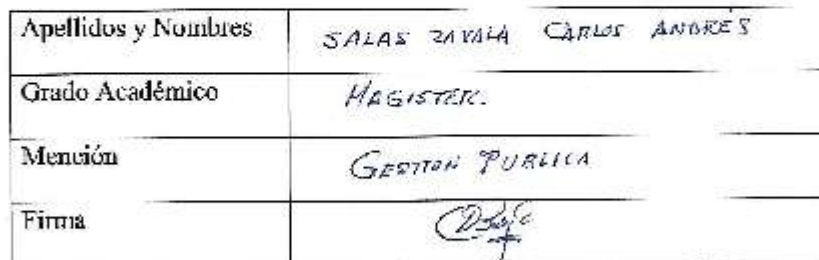 Apellidos y Nombres SALAS ZAVALA CARLOS ANDRÉS
Grado Académico MAGISTER.
Mención GESTION PUBLICA
Firma